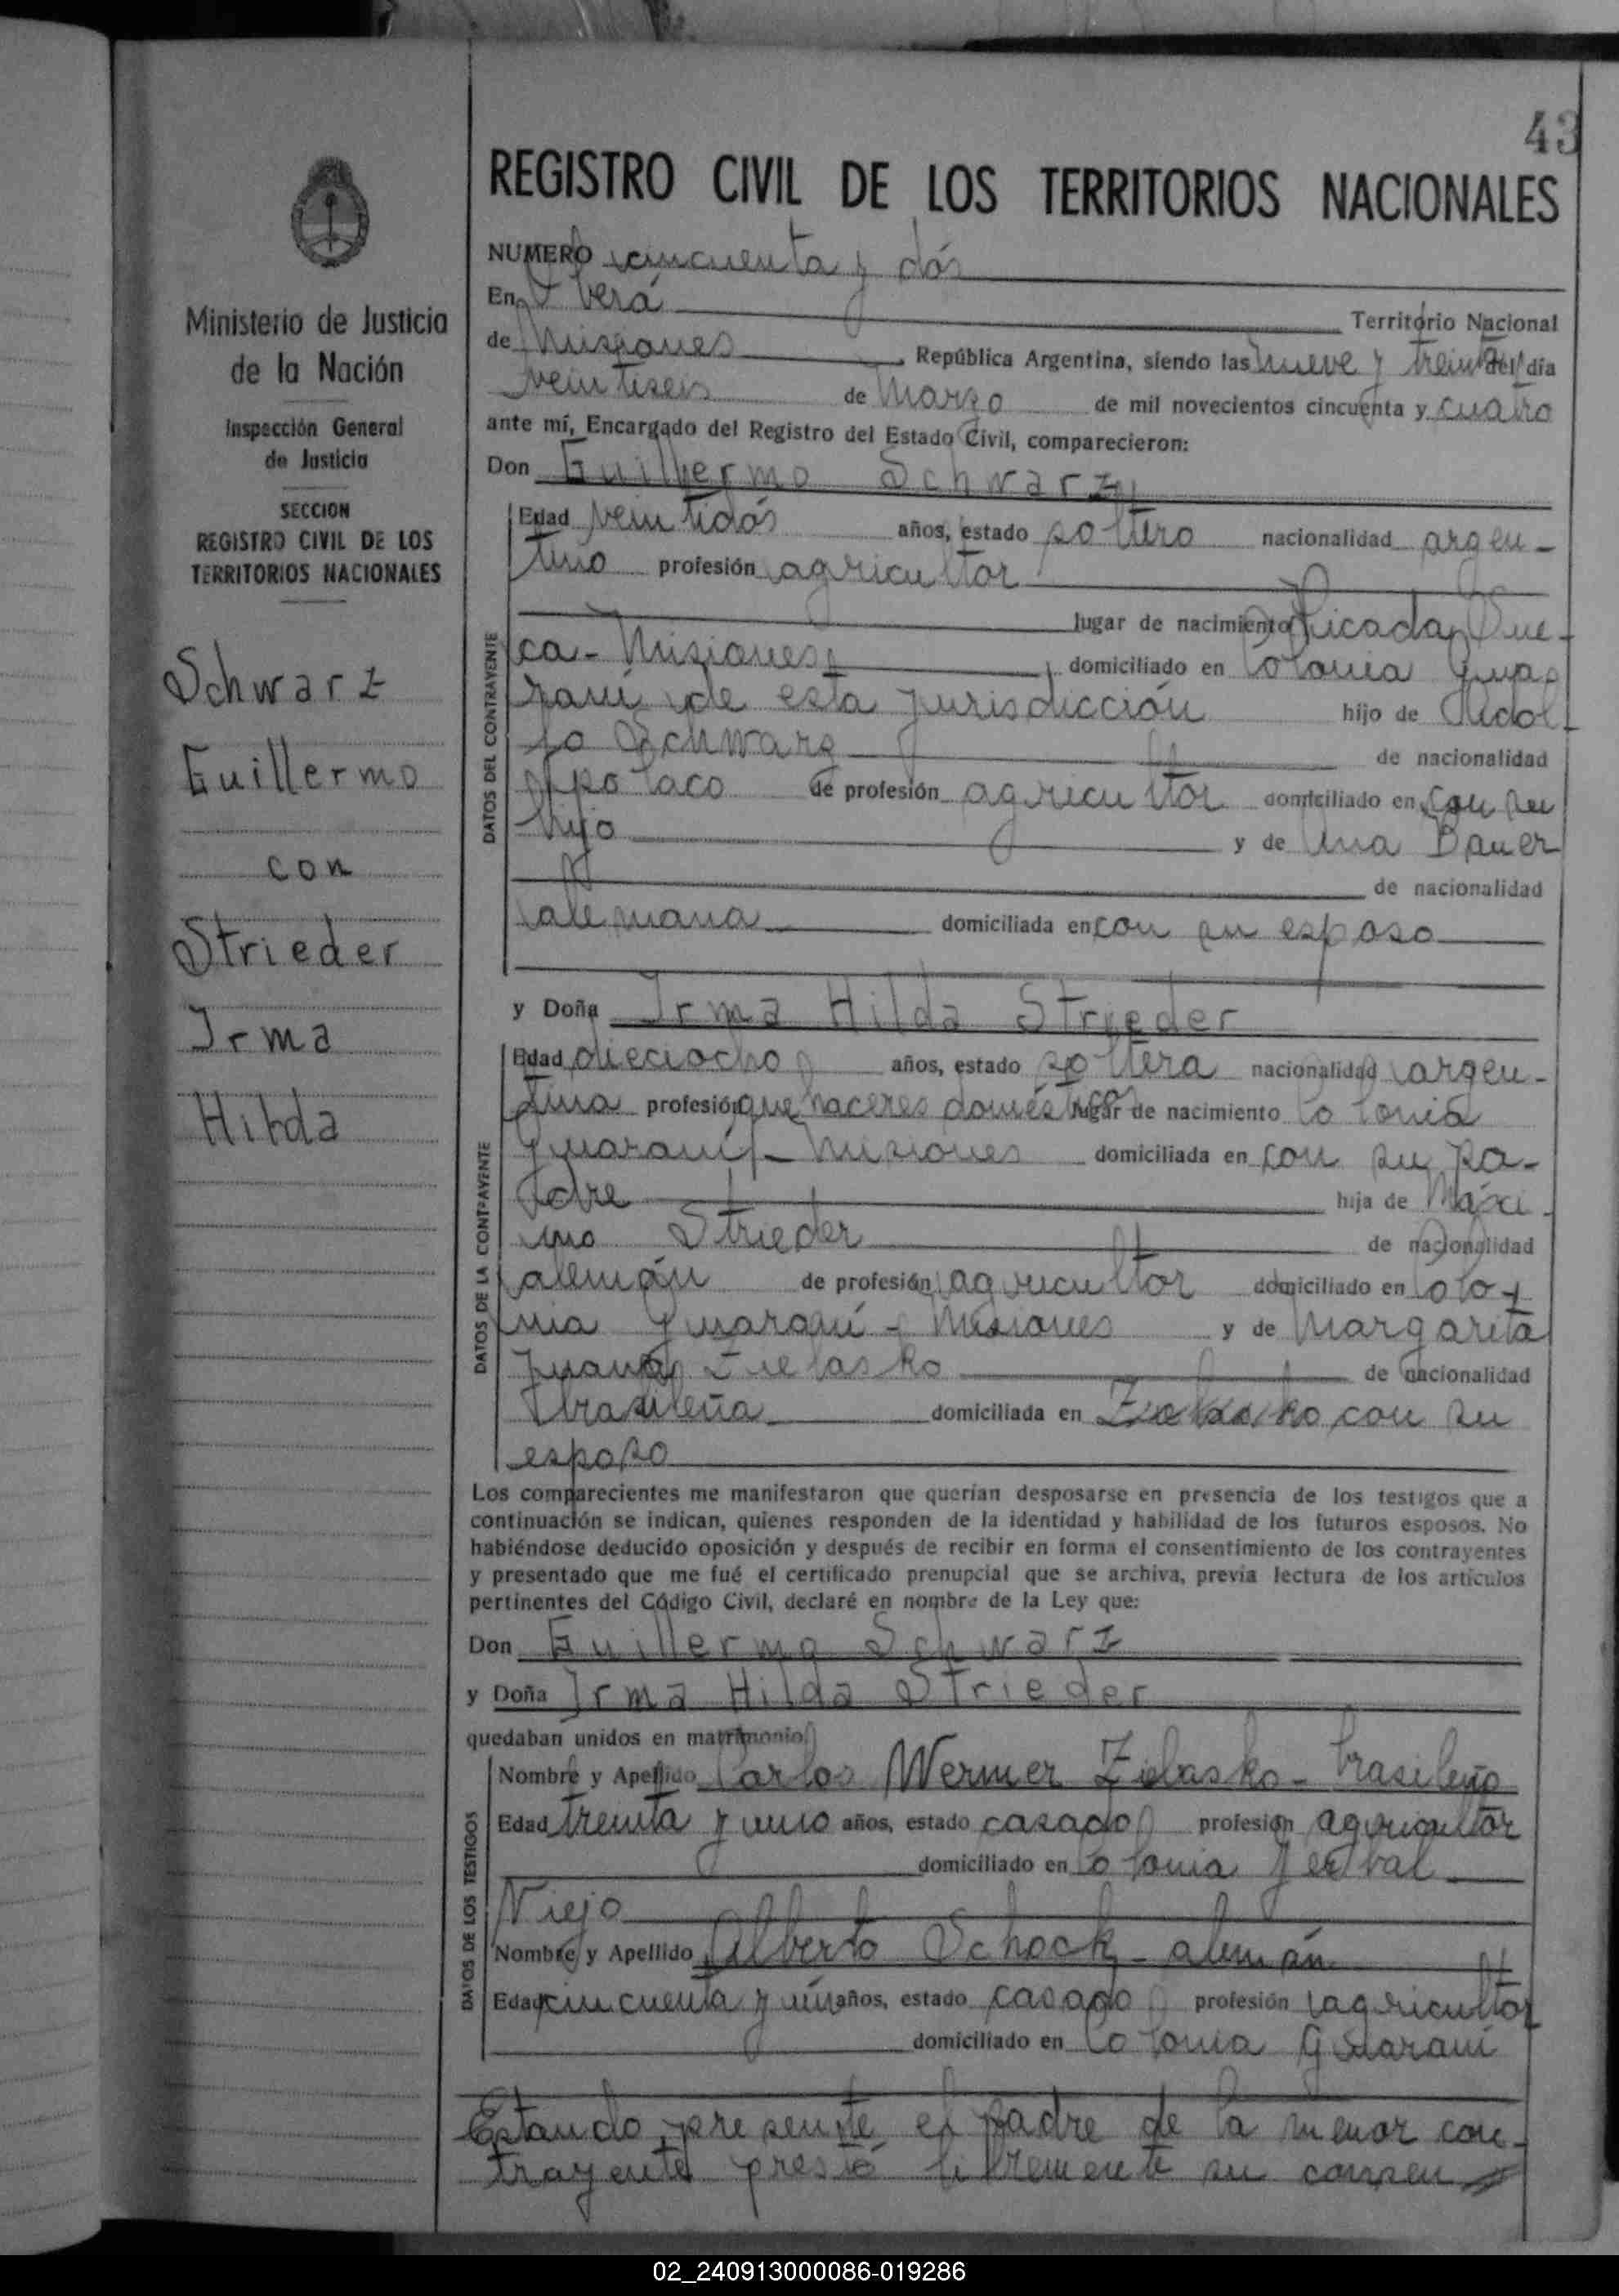 43
REGISTRO CIVIL DE LOS TERRITORIOS NACIONALES
Ministerio de Justicia
de la Nación
Inspección General
de Justicia
SECCION
REGISTRO CIVIL DE LOS
TERRITORIOS NACIONALES
Schwarz
Guillermo
con
Strieder
Irma
Hilda
NUMERO cincuenta y dós
En Oberá Territorio Nacional
de Misiones República Argentina, siendo las nueve y treinta del día
veintiseis de Marzo de mil novecientos cincuenta y cuatro
ante mí, Encargado del Registro del Estado Civil, comparecieron:
Don Guillermo Schwarz
DATOS DEL CONTRAYENTE
Edad veintidós años, estado soltero nacionalidad argen-
tino profesión agricultor
lugar de nacimiento Picada
ca - Misiones domiciliado en Colonia Gua-
raní de esta jurisdicción hijo de Adol-
fo Schwarz de nacionalidad
polaco de profesión agricultor domiciliado en con su
hijo y de Ana Bauer
de nacionalidad
alemana domiciliada en con su esposo
y Doña Irma Hilda Strieder
DATOS DE LA CONTRAYENTE
Edad dieciocho años, estado soltera nacionalidad argen-
tina profesión quehaceres domésticos lugar de nacimiento Colonia
Guaraní - Misiones domiciliada en con su pa-
dre hija de Máxi-
mo Strieder de nacionalidad
alemán de profesión agricultor domiciliado en Colo-
nia Guaraní - Misiones y de Margarita
Juana Zielasko de nacionalidad
brasileña domiciliada en Zielasko con su
esposo
Los comparecientes me manifestaron que querían desposarse en presencia de los testigos que a
continuación se indican, quienes responden de la identidad y habilidad de los futuros esposos. No
habiéndose deducido oposición y después de recibir en forma el consentimiento de los contrayentes
y presentado que me fué el certificado prenupcial que se archiva, previa lectura de los artículos
pertinentes del Código Civil, declaré en nombre de la Ley que:
Don Guillermo Schwarz
y Doña Irma Hilda Strieder
quedaban unidos en matrimonio
DATOS DE LOS TESTIGOS
Nombre y Apellido Carlos Werner Zielasko - brasileño
Edad treinta y uno años, estado casado profesión agricultor
domiciliado en Colonia Yerbal
Viejo
Nombre y Apellido Alberto Schock - alemán
Edad cincuenta y un años, estado casado profesión agricultor
domiciliado en Colonia Guaraní
Estando presente el padre de la menor con-
trayente prestó libremente su consen
02_240913000086-019286